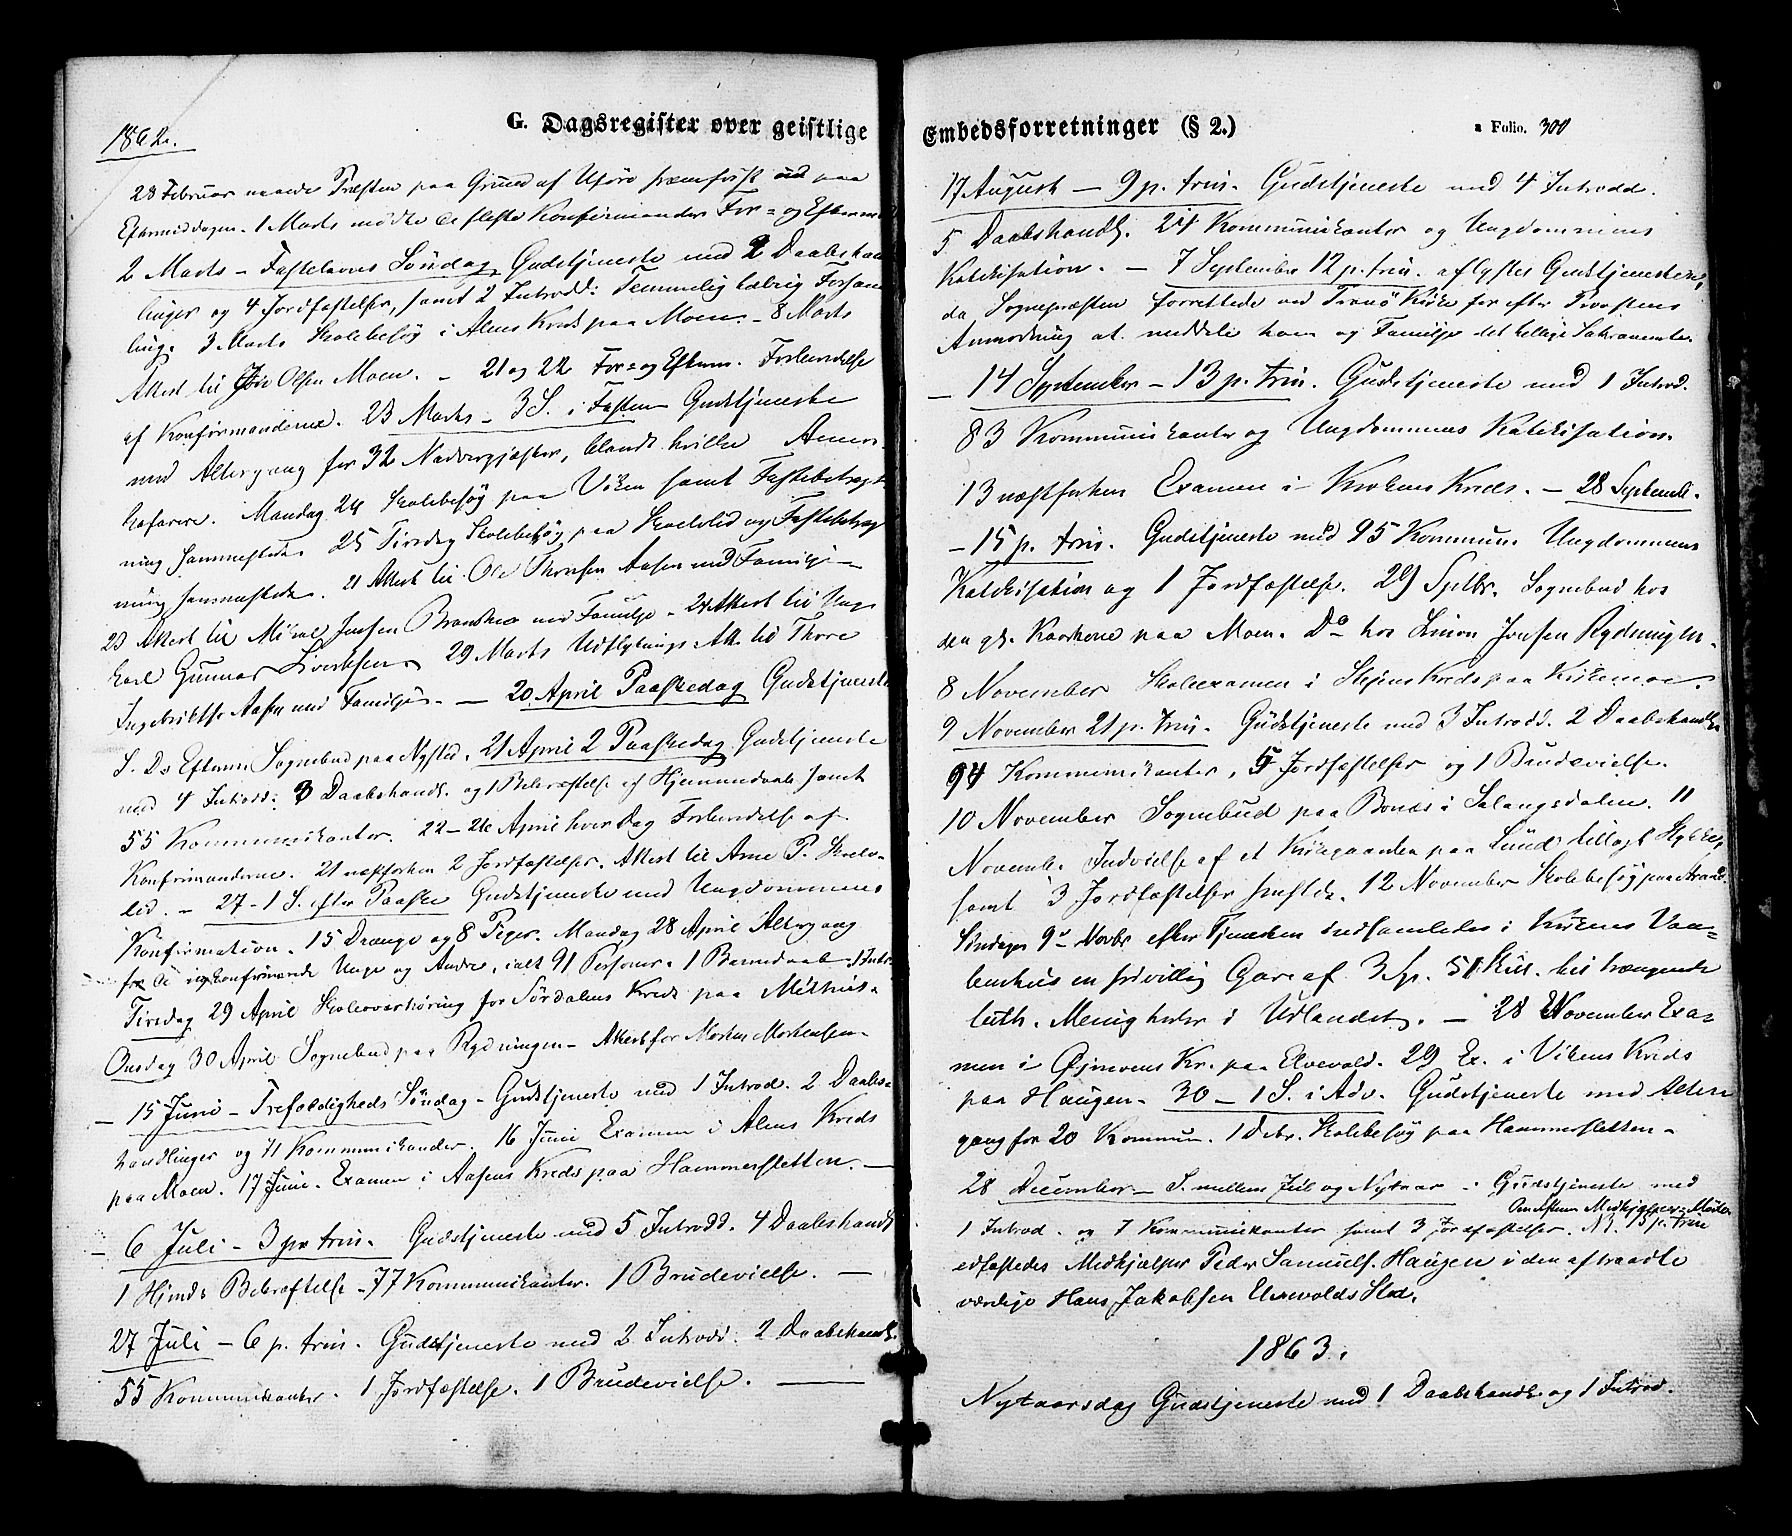 G. Dagsregister over geistlige
1862.
28 Februar naaede Præsten paa Grund af Uföre fremfrisk paa
Eftermiddagen. 1 Marts mødte de fleste Konfirmander For- og Efterm
2 Marts - Fastelavns Söndag Gudstjeneste med 2 Daabshand
linger og 4 Jordfæstelser, samt 2 Introdd: Temmelig talrig Forsam
ling. 3 Marts Skolebesög i Alens Kreds paa Moen. - 8 Marts
Attest til Olsen Moen. - 21 og 22 For- og Efterm. Forberedelse
af Konfirmanderne. 23 Marts - 3 S. i Fasten Gudstjeneste
med Altergang for 32 Nadvergjæster, blandt hvilke
Mandag 24 Skolebesög paa Viken samt Fastebetragt
ning sammesteds. 25 Tirsdag Skolebesög paa Skoelvlid og Fastebetrag
ning sammesteds. 21 Attest til Ole Thomsen Aasen med Familje -
23 Attest til Mikal Jensen Brandmo med Familje - 24 Attest til Unge
karl Gunnar Sivertsen. 29 Marts Udflytnings Att. til Thore
Ingebriktsen Aasen med Familje. - 20 April Paaskedag Gudstjeneste
S. D. Efterm. Sognebud paa Nysted. 21 April 2 Paaskedag Gudstjeneste
med 4 Introdd: 3 Daabshandl. og 1 Bekræftelse af Hjemmedaab samt
55 Kommunikanter. 22-26 April hver Dag Forberedelse af
Konfirmanderne. 21 næstforhen 2 Jordfæstelser. Attest til Arne P. Skoelv-
lid. - 27 - 1 S. efter Paaske Gudstjeneste med Ungdommens
Konfirmation. 15 Drenge og 8 Piger. Mandag 28 April Altergang
for de nykonfirmerede Unge og Andre, ialt 91 Personer. 1 Barnedaab 1 Intr.
Tirsdag 29 April Skoleoverhöring for Sördalens Kreds paa
Onsdag 30 April Sognebud paa Rydningen - Attest for Morten Mortensen.
- 15 Juni - Trefoldigheds Söndag - Gudstjeneste med 1 Introd. 2 Daabs-
handlinger og 71 Kommunikander. 16 Juni Examen i Alens Kreds
paa Moen. 17 Juni. Examen i Aasens Kreds paa Hammersletten. -
- 6 Juli - 3 p. trin. Gudstjeneste med 5 Introdd. 4 Daabshandl
1 Hjmds Bekræftelse - 77 Kommunikanter. 1 Brudevielse. -
27 Juli - 6 p. trin. Gudstjeneste med 2 Introdd. 2 Daabshandl.
55 Kommunikanter. 1 Jordfæstelse. 1 Brudevielse. -
Embedsforretninger (§ 2.)
a Folio. 300
17 August - 9 p. trin. Gudstjeneste med 4 Introdd.
5 Daabshandl. 24 Kommunikanter og Ungdommens
Katekisation. - 7 September 12 p. trin. aflystes Gudstjenesten,
da Sognepræsten forrettede ved Tranö Kirke for efter Provstens
Anmodning at meddele ham og Familje det hellige Sakramente.
- 14 September - 13 p. trin. Gudstjeneste med 1 Introd.
83 Kommunikanter og Ungdommens Katekisation.
13 næstforhen Examen i Krokens Kreds. - 28 Septemb.
- 15 p. trin. Gudstjeneste med 95 Kommun. Ungdommens
Katekisation og 1 Jordfæstelse. 29 Septbr. Sognebud hos
den gl. paa Moen. Do hos Simon Jensen Rydningen.
8 November Skoleexamen i Stejens Kreds paa Kirkemoe.
9 November 21 p. trin. Gudstjeneste med 3 Introdd. 2 Daabshandl.
94 Kommunikanter, 5 Jordfæstelser og 1 Brudevielse.
10 November Sognebud paa Bones i Salangsdalen. 11
Novemb. Indvielse af et Kirkegaarden paa Lund tillagt Stykke,
samt 3 Jordfæstelser sammesteds. 12 November Skolebesög paa Strand.
Söndagen 9de Novbr efter Tjenesten indsamledes i Kirkens Vaa-
benhus en frivillig Gave af 3 Sp. 51 Skill. til trængende
luth. Menigheder i Udlandet. - 28 November Exa-
men i Øjnevens Kr. paa Elvevold. 29 Ex. i Vikens Kreds
paa Haugen. 30 - 1 S. i Adv. Gudstjeneste med Alter
gang for 20 Kommun. 1 Debr. Skolebesög paa Hammersletten.
28 December - S. mellem Jul og Nytaar - Gudstjeneste med
1 Introd. og 7 Kommunikanter samt 3 Jordfæstelser. NB. 15 p. trin
edfæstedes Medhjælper Peder Samuels. Haugen i den aftraadte
værdige Hans Jakobsen Elvevolds Sted.
1863.
Nytaarsdag Gudstjeneste med 1 Daabshandl. og 1 Introd.